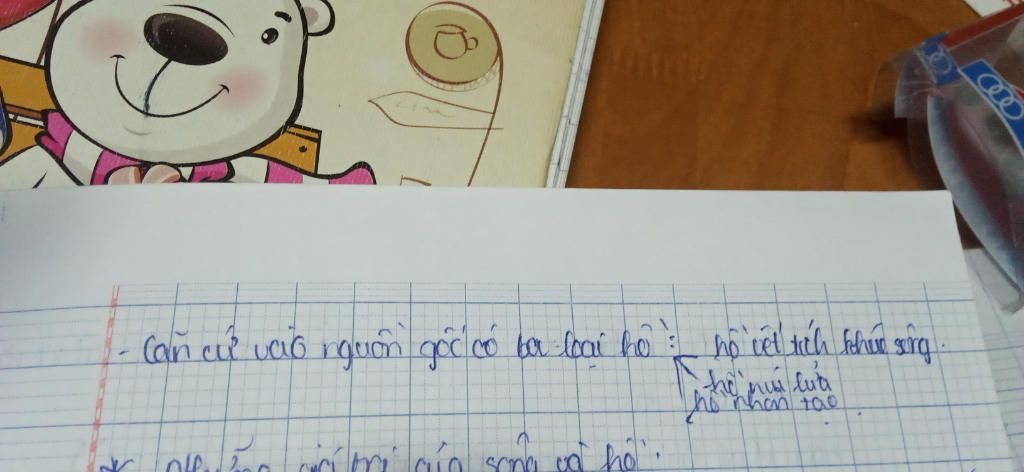 - Căn cứ vào nguồn gốc có ba loại hồ: hồ vết tích khúc sông.
hồ núi lửa
hồ nhân tạo.
* Những giá trị của sông và hồ: